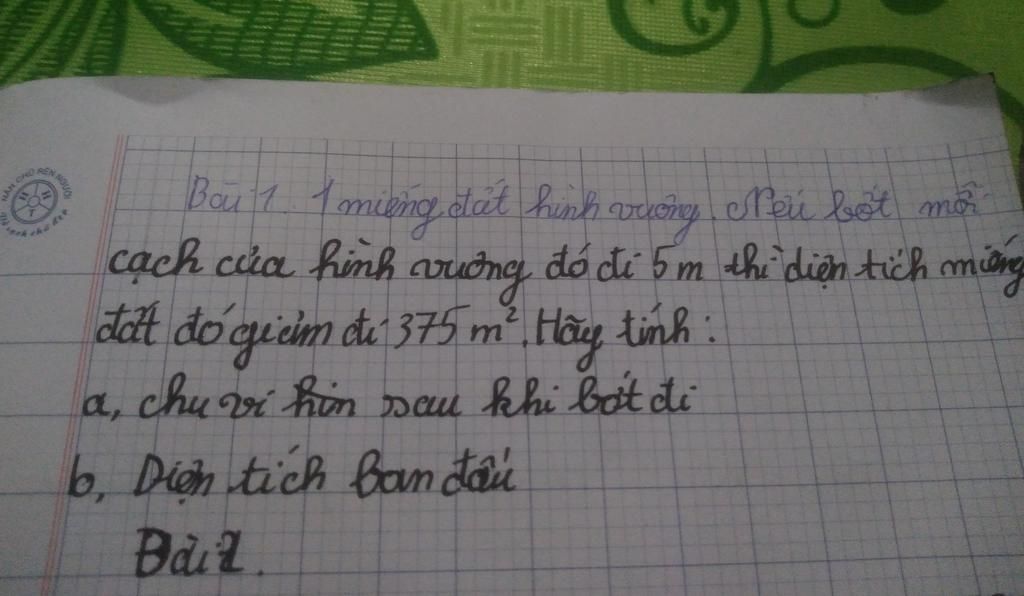 Bài 1. 1 miếng đất hình vuông. Nếu bớt mỗi
cạch của hình vuông đó đi 5 m thì diện tích miếng
đất đó giảm đi 375 m². Hãy tính:
a, chu vi hìn sau khi bớt đi
b, Diện tích ban đầu
Bài 2.